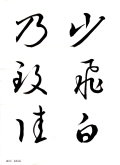 少飛白
乃致佳